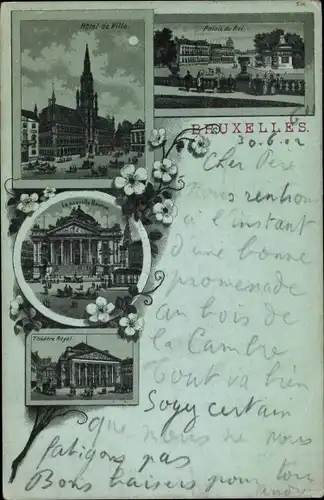 Hôtel de Ville.
Palais du Roi.
BRUXELLES.
30.6.02
Cher Père
nous rentrons
à l'instant
d'une bonne
promenade
au bois de
la Cambre
Tout va bien
Soyez certain
que nous ne nous
fatigons pas
Bons baisers pour
La nouvelle Bourse
Théâtre Royal.